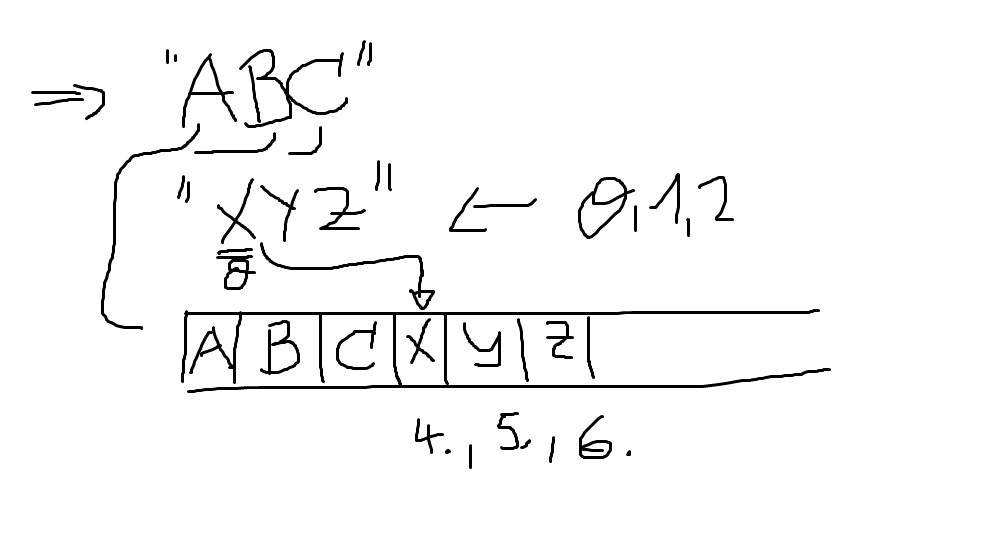 ⇒ "ABC"
"XYZ" ← 0,1,2
0
A B C X Y Z
4., 5., 6.